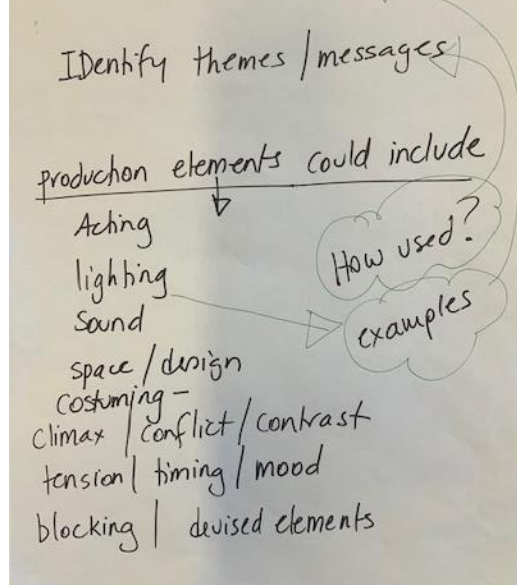 IDentify themes / messages
production elements could include
Acting
How used?
lighting
examples
Sound
space / design
costuming -
climax / conflict / contrast
tension | timing / mood
blocking | devised elements